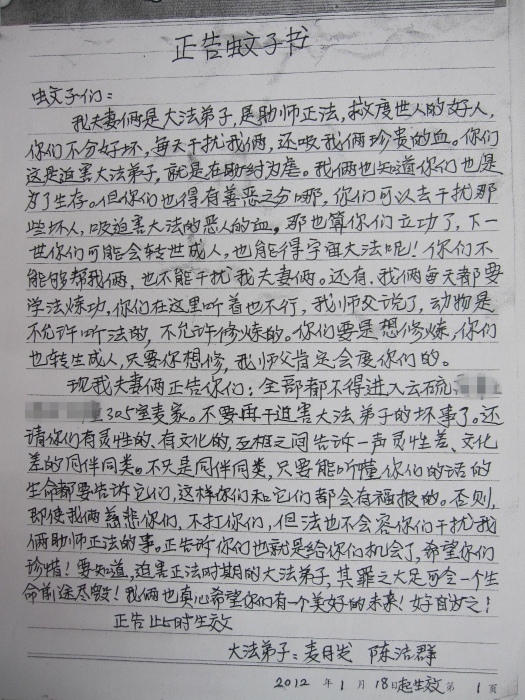 正告蚊子书
蚊子们：
我夫妻俩是大法弟子，是助师正法，救度世人的好人，
你们不分好坏，每天干扰我俩，还吸我俩珍贵的血。你们
这是迫害大法弟子，就是在助纣为虐。我俩也知道你们也是
为了生存。但你们也得有善恶之分哪，你们可以去干扰那
些坏人，吸迫害大法的恶人的血，那也算你们立功了，下一
世你们可能会转世成人，也能得宇宙大法呢！你们不
能够帮我俩，也不能干扰我夫妻俩。还有，我俩每天都要
学法炼功，你们在这里听着也不行，我师父说了，动物是
不允许听法的，不允许修炼的。你们要是想修炼，你们
也转生成人，只要你想修，我师父肯定会度你们的。
现我夫妻俩正告你们：全部都不得进入云硫
305室麦家。不要再干迫害大法弟子的坏事了。还
请你们有灵性的、有文化的，互相之间告诉一声灵性差、文化
差的同伴同类。不只是同伴同类，只要能听懂你们的话的
生命都要告诉它们，这样你们和它们都会有福报的。否则，
即使我俩慈悲你们，不打你们，但法也不会容你们干扰我
俩助师正法的事。正告你们也就是给你们机会了，希望你们
珍惜！要知道，迫害正法时期的大法弟子，其罪之大足可令一个生
命前途尽毁！我俩也真心希望你们有一个美好的未来！好自为之！
正告此时生效
大法弟子：麦日发 陈洁群
2012 年 1 月 18日起生效 第 1 页